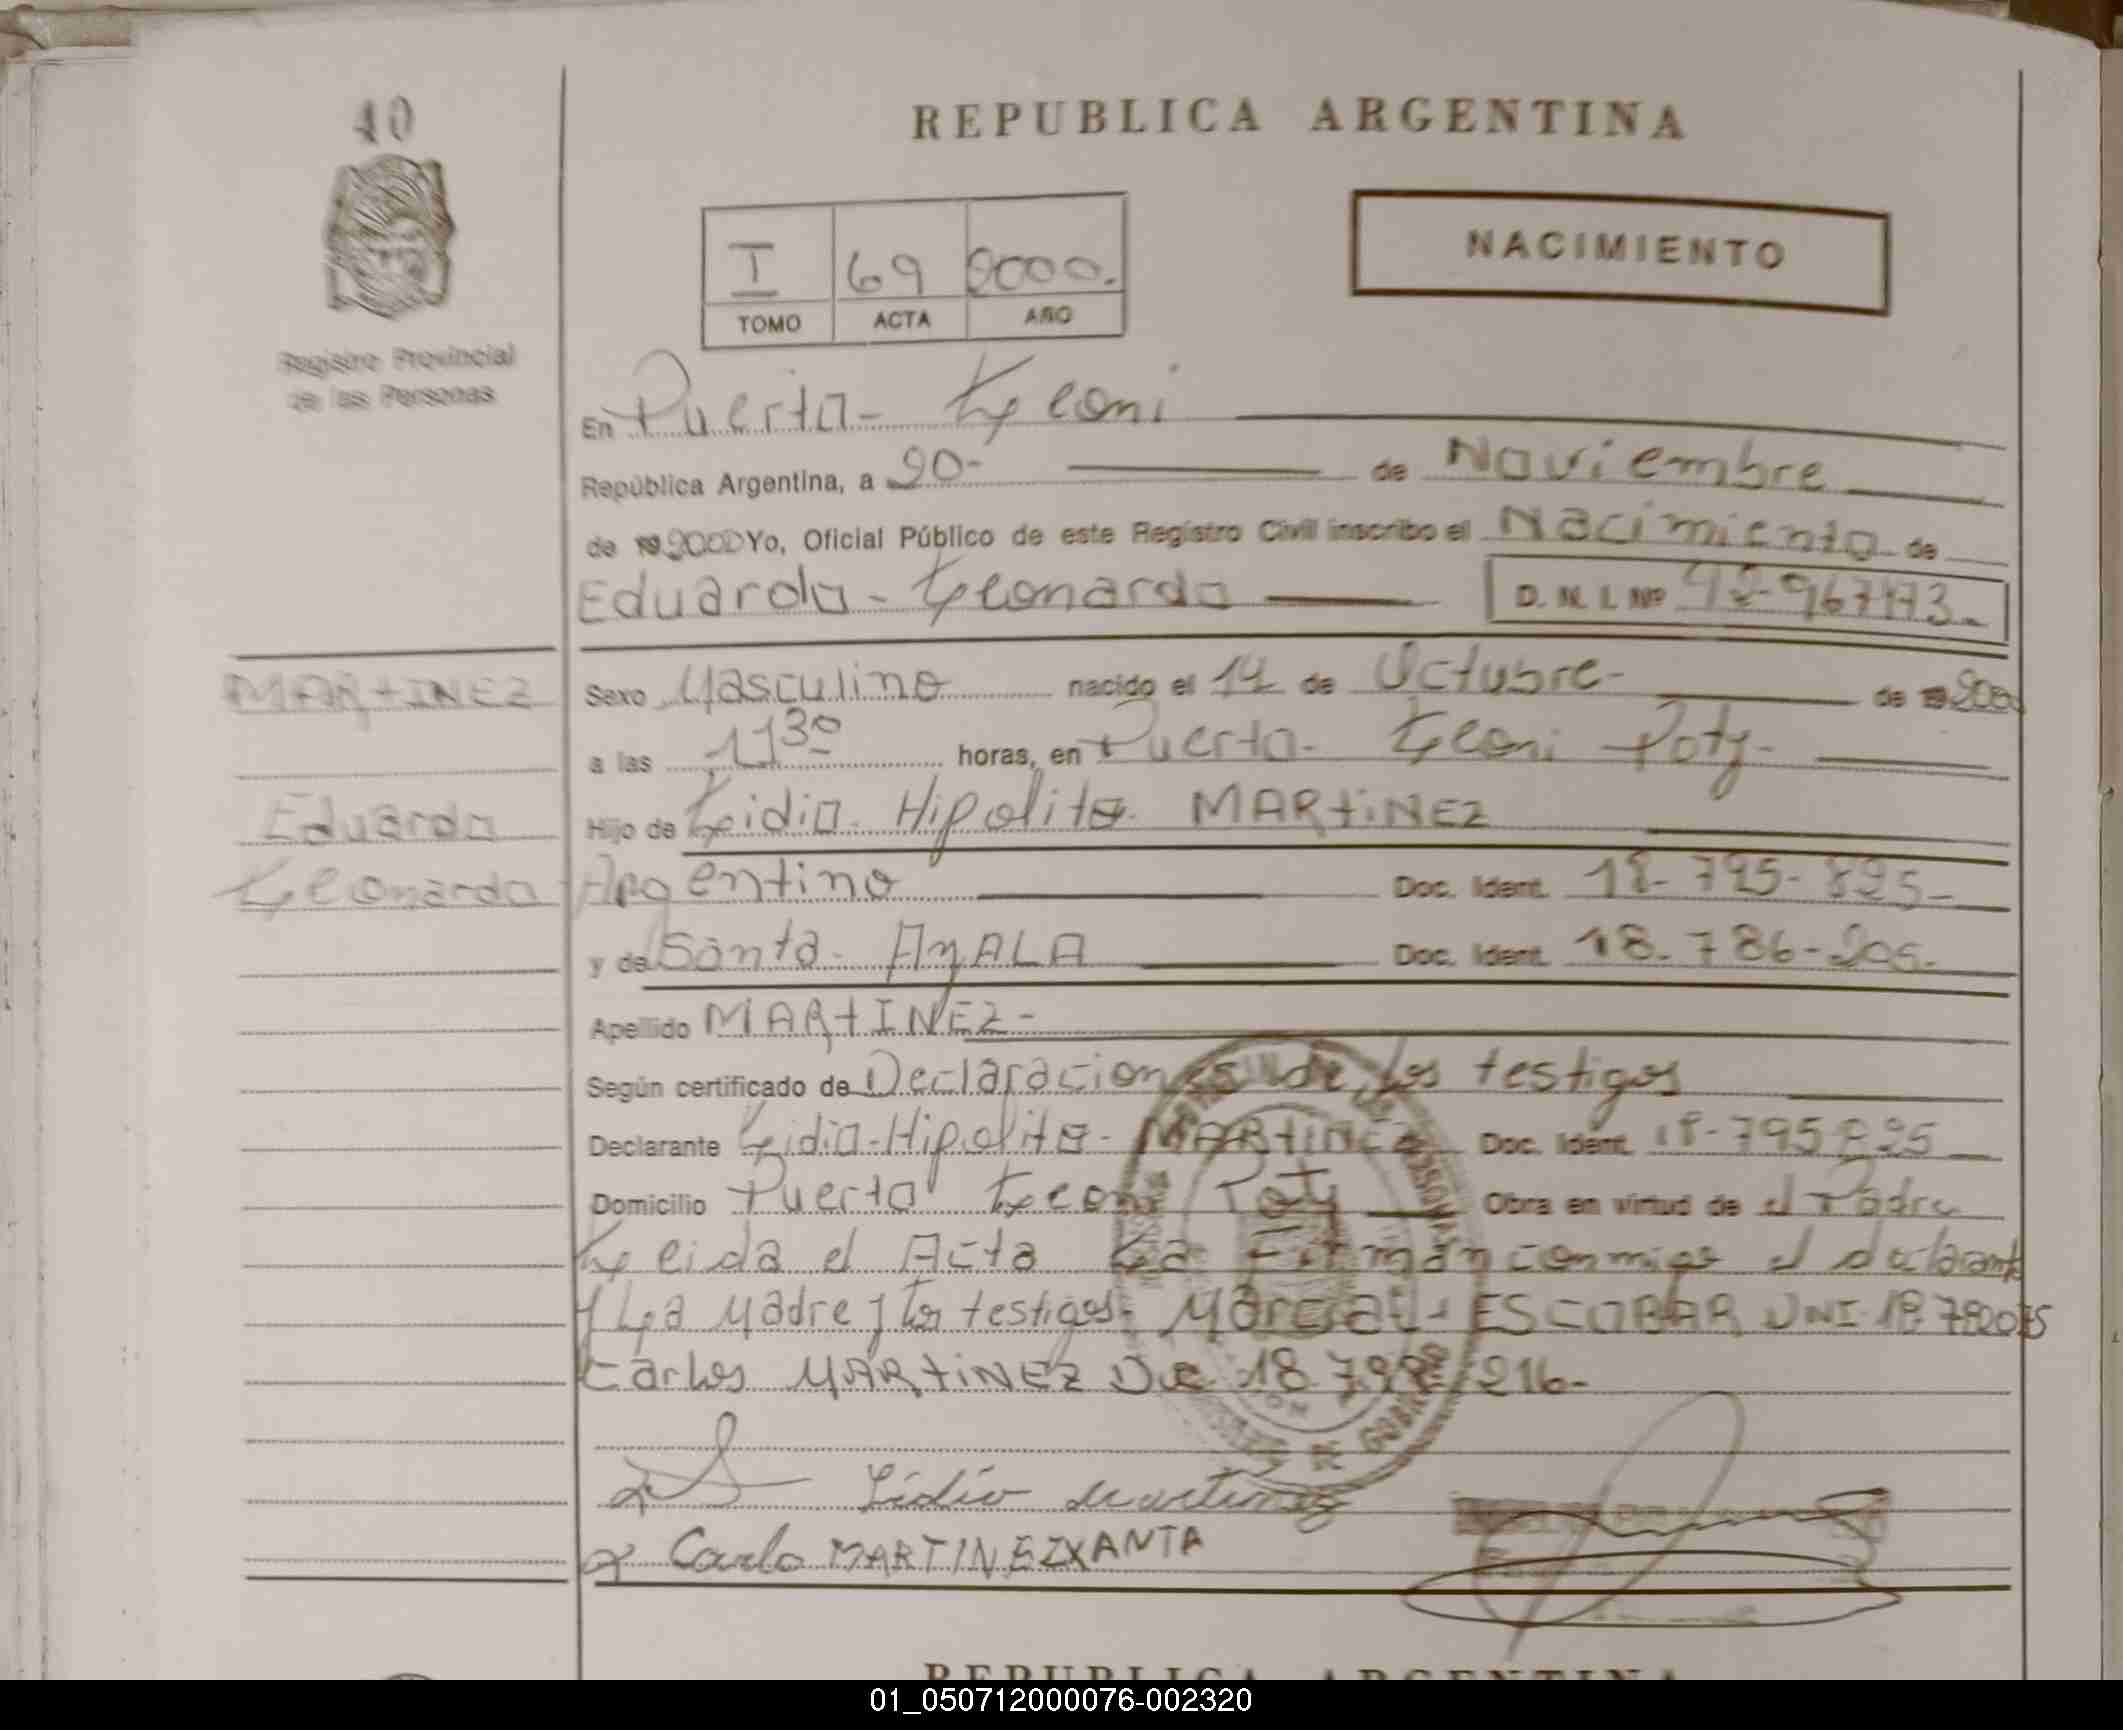 40
REPUBLICA ARGENTINA
NACIMIENTO
I 69 2000.
TOMO ACTA AÑO
Registro Provincial
de las Personas
En Puerto Leoni
República Argentina, a 20- de Noviembre
de 19 2000 Yo, Oficial Público de este Registro Civil inscribo el Nacimiento de
Eduardo - Leonardo D. N. I. Nº
MARTINEZ
Sexo Masculino nacido el 14 de Octubre- de 19 2000
a las 11 30 horas, en Puerto- Leoni Poty-
Eduardo
Hijo de Lidio- Hipolito- MARTINEZ
Leonardo
Argentino Doc. Ident. 18-795-825-
y de Santa- AyALA Doc. Ident. 18-786-205-
Apellido MARTINEZ-
Según certificado de Declaraciones de los testigos
Declarante Lidio-Hipolito- MARTINEZ Doc. Ident. 18-795825
Domicilio Puerto Leoni Poty Obra en virtud de el Padre
Leida el Acta La Firman conmigo el declarante
y La Madre y los testigos- Marcial- ESCOBAR DNI-18
Carlos MARTINEZ 18 216-
Lidio Martinez
Carlo MARTINEZ XANTA
REPUBLICA ARGENTINA
01_050712000076-002320